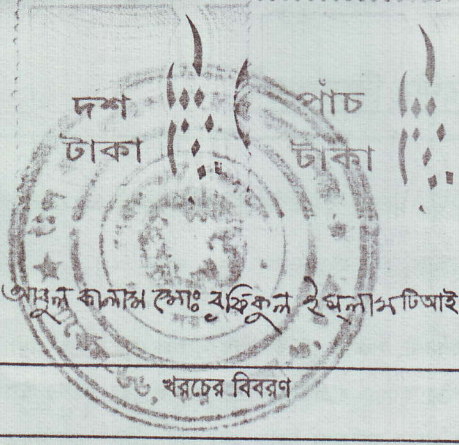 দশ পাঁচ
টাকা টাকা
আবুল কালাম মোঃ রফিকুল ইসলাম টিআই
খরচের বিবরণ